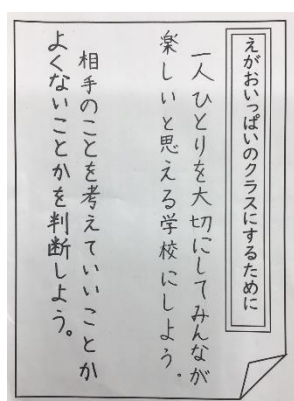 えがおいっぱいのクラスにするために
一人ひとりを大切にしてみんなが
楽しいと思える学校にしよう。
相手のことを考えていいことか
よくないことかを判断しよう。